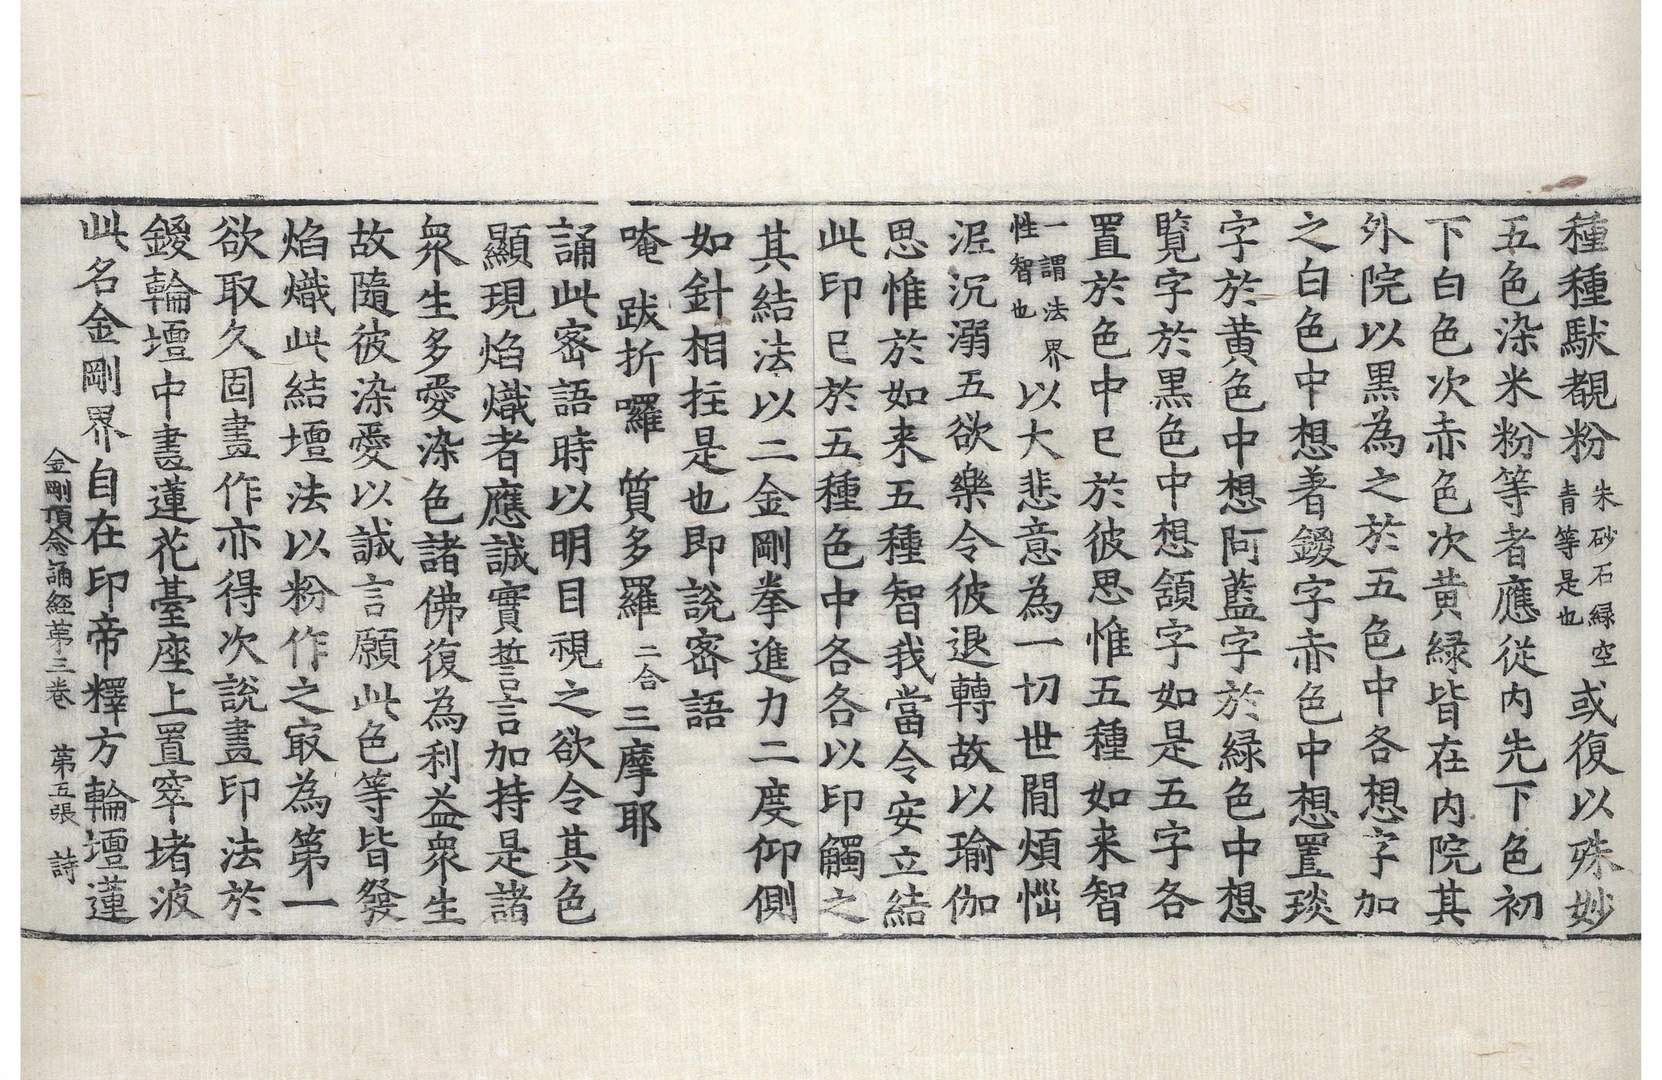 種種馱覩粉朱砂石緑空青等是也或復以殊妙
五色染米粉等者應從內先下色初
下白色次赤色次黃緑皆在內院其
外院以黒為之於五色中各想字加
之白色中想着鑁字赤色中想置琰
字於黃色中想阿藍字於緑色中想
覽字於黒色中想頷字如是五字各
置於色中已於彼思惟五種如来智
一謂法界性智也以大悲意為一切世間煩惱
泥沉溺五欲樂令彼退轉故以瑜伽
思惟於如来五種智我當令安立結
此印已於五種色中各各以印觸之
其結法以二金剛拳進力二度仰側
如針相拄是也即說密語
唵 跋折囉 質多羅二合 三摩耶
誦此密語時以明目視之欲令其色
顯現焰熾者應誠實誓言加持是諸
衆生多愛染色諸佛復為利益衆生
故隨彼染愛以誠言願此色等皆發
焰熾此結壇法以粉作之㝡為第一
欲取久固畫作亦得次說畫印法於
鑁輪壇中畫蓮花臺座上置窣堵波
此名金剛界自在印帝釋方輪壇蓮
金剛頂念誦經第三卷 第五張 詩